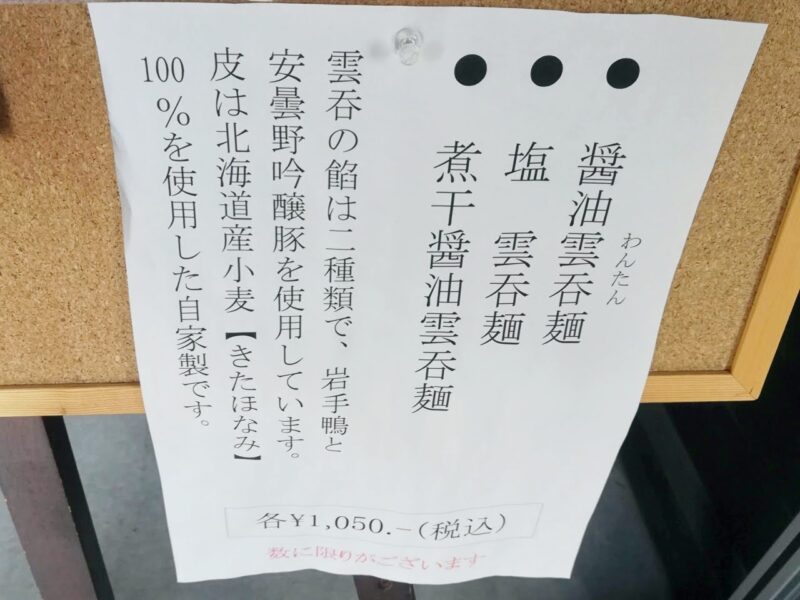 ● 醤油雲呑麺
わんたん
● 塩 雲呑麺
● 煮干醤油雲呑麺
雲呑の餡は二種類で、岩手鴨と
安曇野吟醸豚を使用しています。
皮は北海道産小麦【きたほなみ】
100%を使用した自家製です。
各¥1,050.-(税込)
数に限りがございます